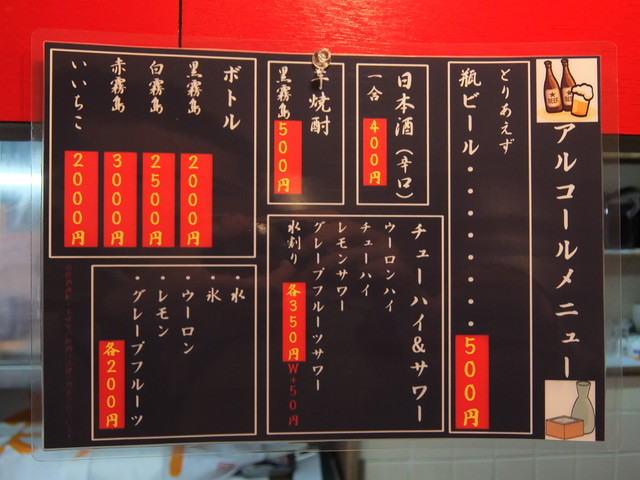 アルコールメニュー
BEER
BEER
とりあえず
瓶ビール・・・・・・・・・500円
日本酒(辛口)
一合
400円
芋焼酎
黒霧島
500円
チューハイ&サワー
ウーロンハイ
チューハイ
レモンサワー
グレープフルーツサワー
水割り
各350円
W+50円
ボトル
黒霧島
2000円
白霧島
2500円
赤霧島
3000円
いいちこ
2000円
・水
・氷
・ウーロン
・レモン
・グレープフルーツ
各200円